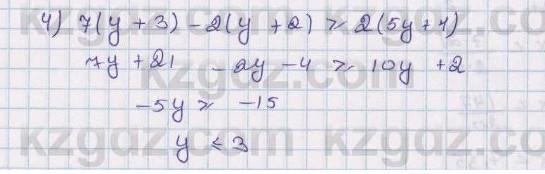 4) 7(y + 3) - 2(y + 2) ⩾ 2(5y + 1)
7y + 21 - 2y - 4 ⩾ 10y + 2
-5y ⩾ -15
y ⩽ 3
kzgdz.com